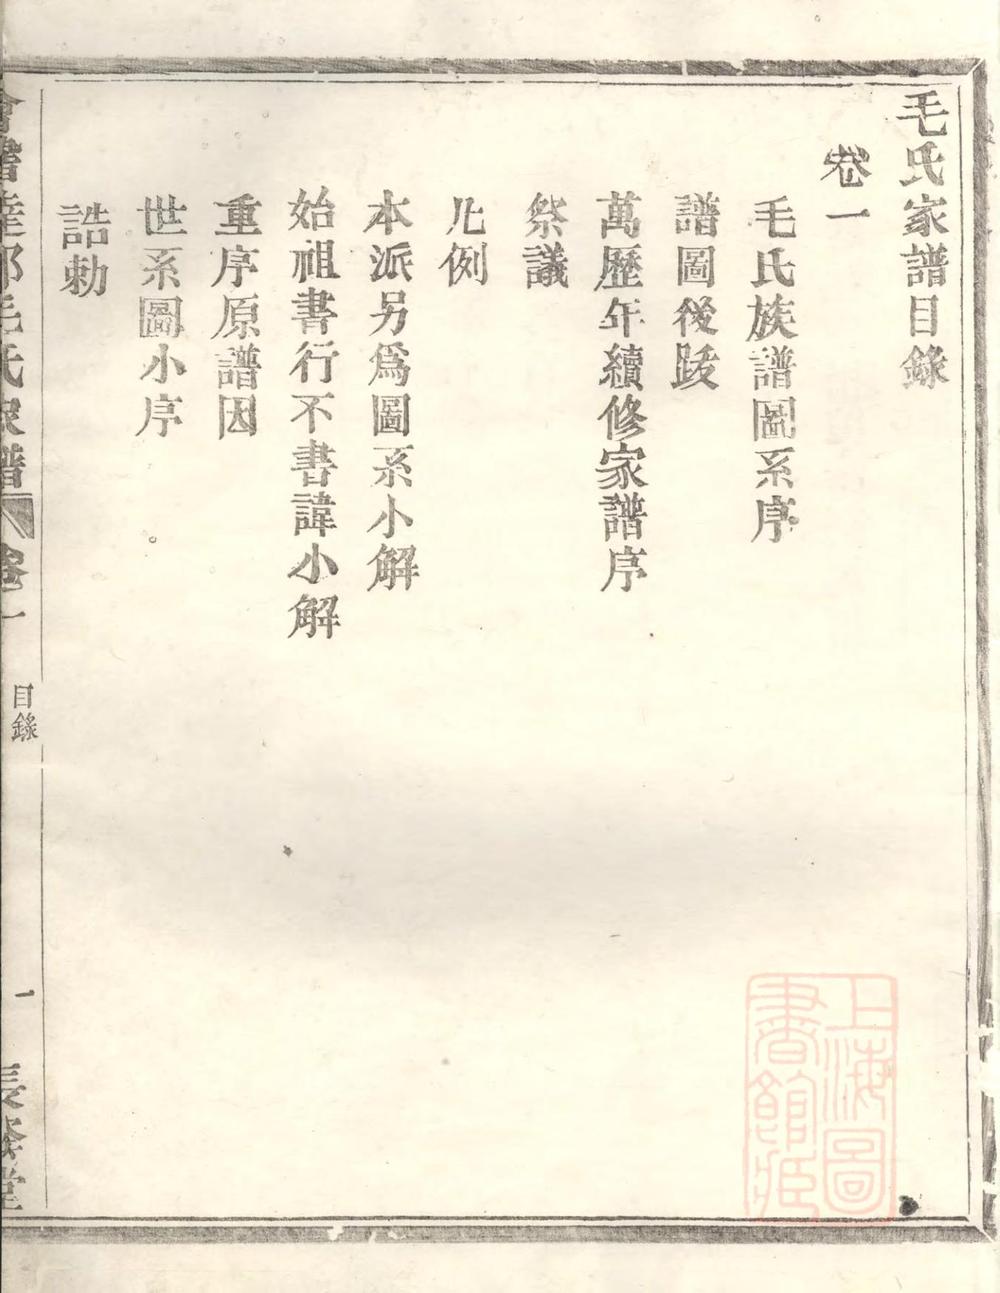 毛氏家譜目錄
卷一
毛氏族譜圖系序
譜圖後跋
萬歷年續修家譜序
祭議
凡例
本派另爲圖系小解
始祖書行不書諱小解
重序原譜因
世系圖小序
誥勅
毛氏家譜 卷一 目錄 一
上海圖
書館藏